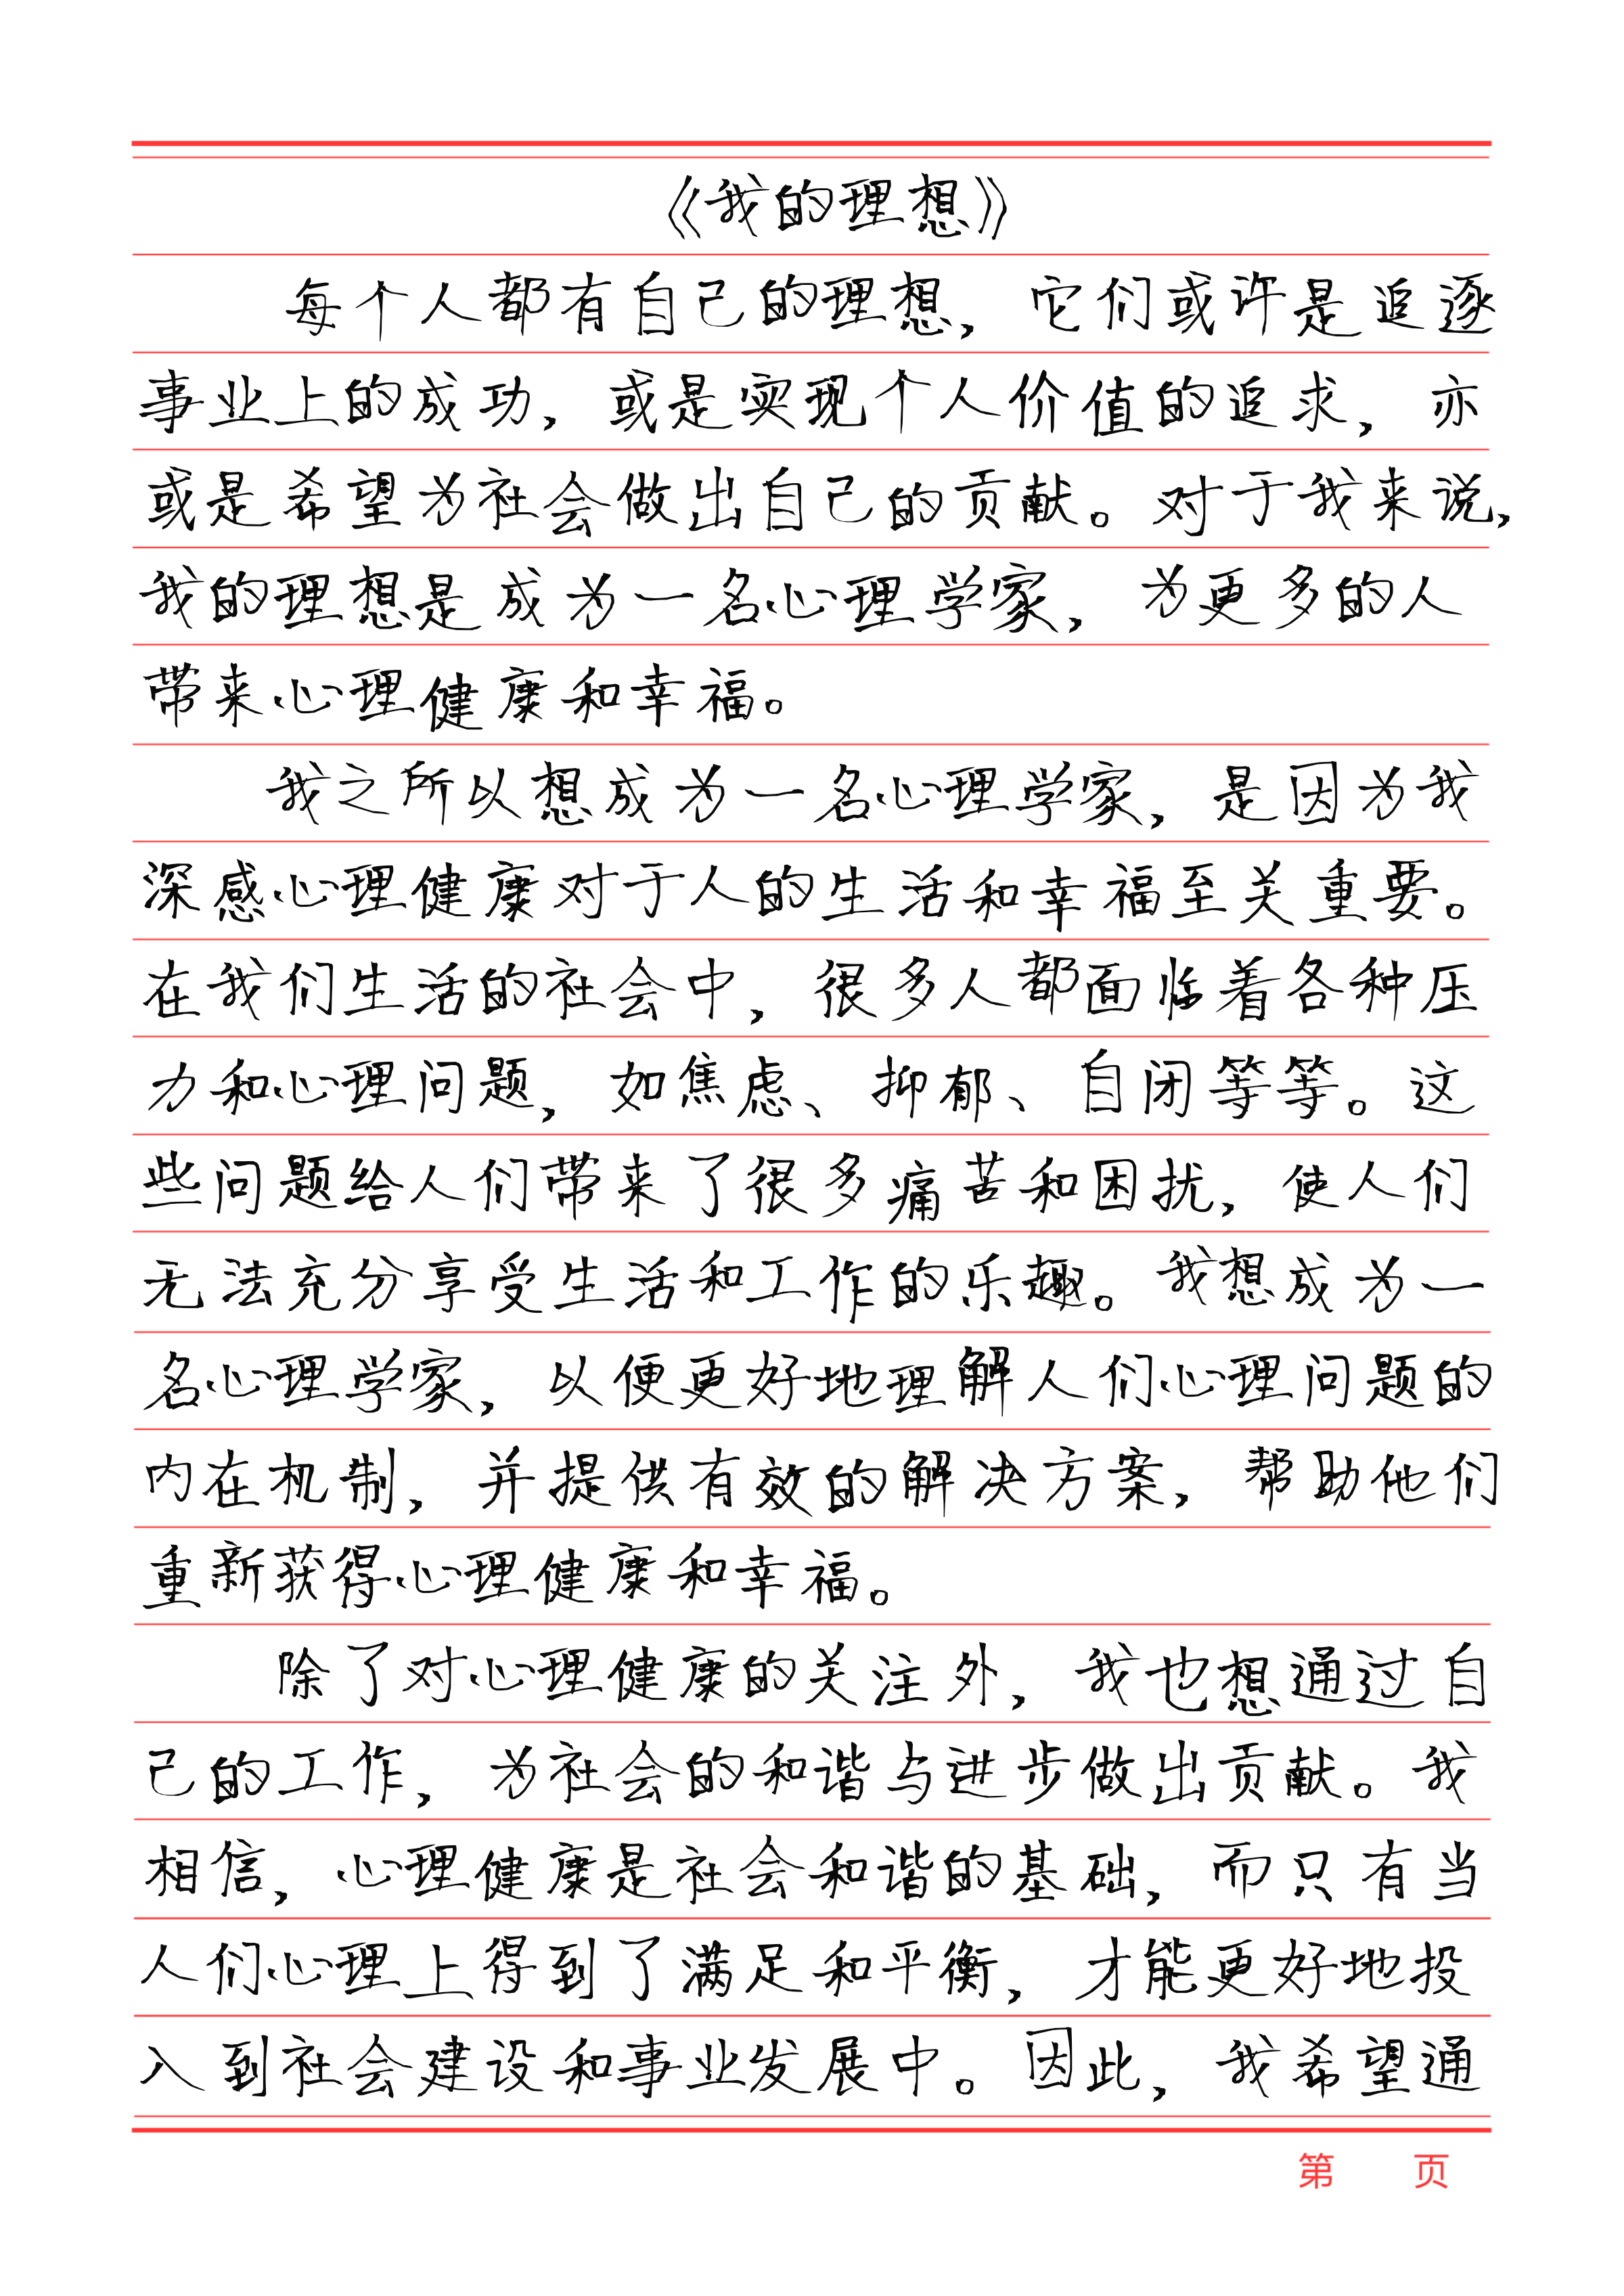 《我的理想》
每个人都有自己的理想，它们或许是追逐
事业上的成功，或是实现个人价值的追求，亦
或是希望为社会做出自己的贡献。对于我来说，
我的理想是成为一名心理学家，为更多的人
带来心理健康和幸福。
我之所以想成为一名心理学家，是因为我
深感心理健康对于人的生活和幸福至关重要。
在我们生活的社会中，很多人都面临着各种压
力和心理问题，如焦虑、抑郁、自闭等等。这
些问题给人们带来了很多痛苦和困扰，使人们
无法充分享受生活和工作的乐趣。我想成为一
名心理学家，以便更好地理解人们心理问题的
内在机制，并提供有效的解决方案，帮助他们
重新获得心理健康和幸福。
除了对心理健康的关注外，我也想通过自
己的工作，为社会的和谐与进步做出贡献。我
相信，心理健康是社会和谐的基础，而只有当
人们心理上得到了满足和平衡，才能更好地投
入到社会建设和事业发展中。因此，我希望通
第 页